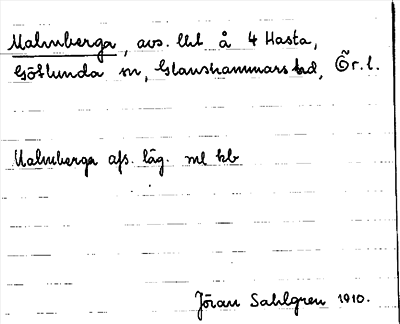 Malmberga, avs. lht å 4 Hasta,
Götlunda sn, Glanshammars hd, Ör. l.
Malmberga afs. läg. ml kb
Jöran Sahlgren 1910.